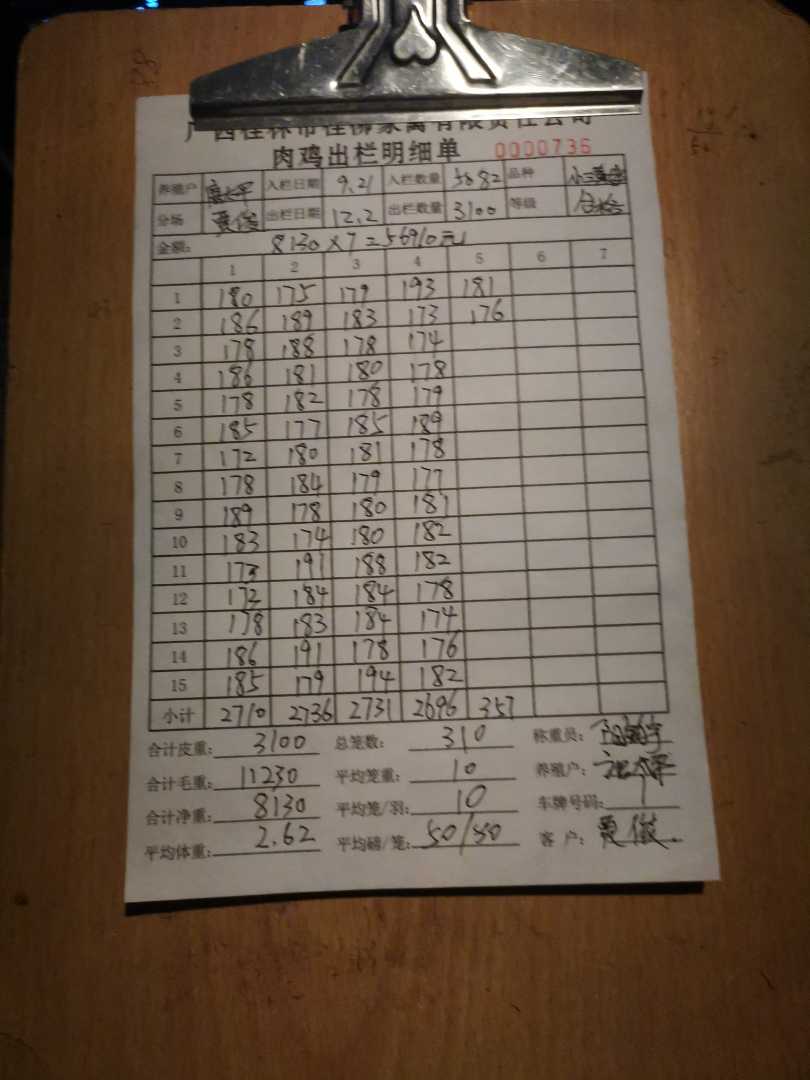 广西桂林市桂柳家禽有限责任公司
肉鸡出栏明细单 0000736
养殖户 入栏日期 9.21 入栏数量 5082 品种
分场 贾俊 出栏日期 12.2 出栏数量 3100 等级 合格
金额: 8130×7=56910元
1 2 3 4 5 6 7
1 180 175 179 193 181
2 186 189 183 173 176
3 178 188 178 174
4 186 181 180 178
5 178 182 178 179
6 185 177 185 189
7 172 180 181 178
8 178 184 179 177
9 189 178 180 181
10 183 174 180 182
11 173 191 188 182
12 172 184 184 178
13 178 183 184 174
14 186 191 178 176
15 185 179 194 182
小计 2710 2736 2731 2696 357
合计皮重: 3100 总笼数: 310 称重员:
合计毛重: 11230 平均笼重: 10 养殖户:
合计净重: 8130 平均笼/羽: 10 车牌号码:
平均体重: 2.62 平均磅/笼: 50/50 客户: 贾俊